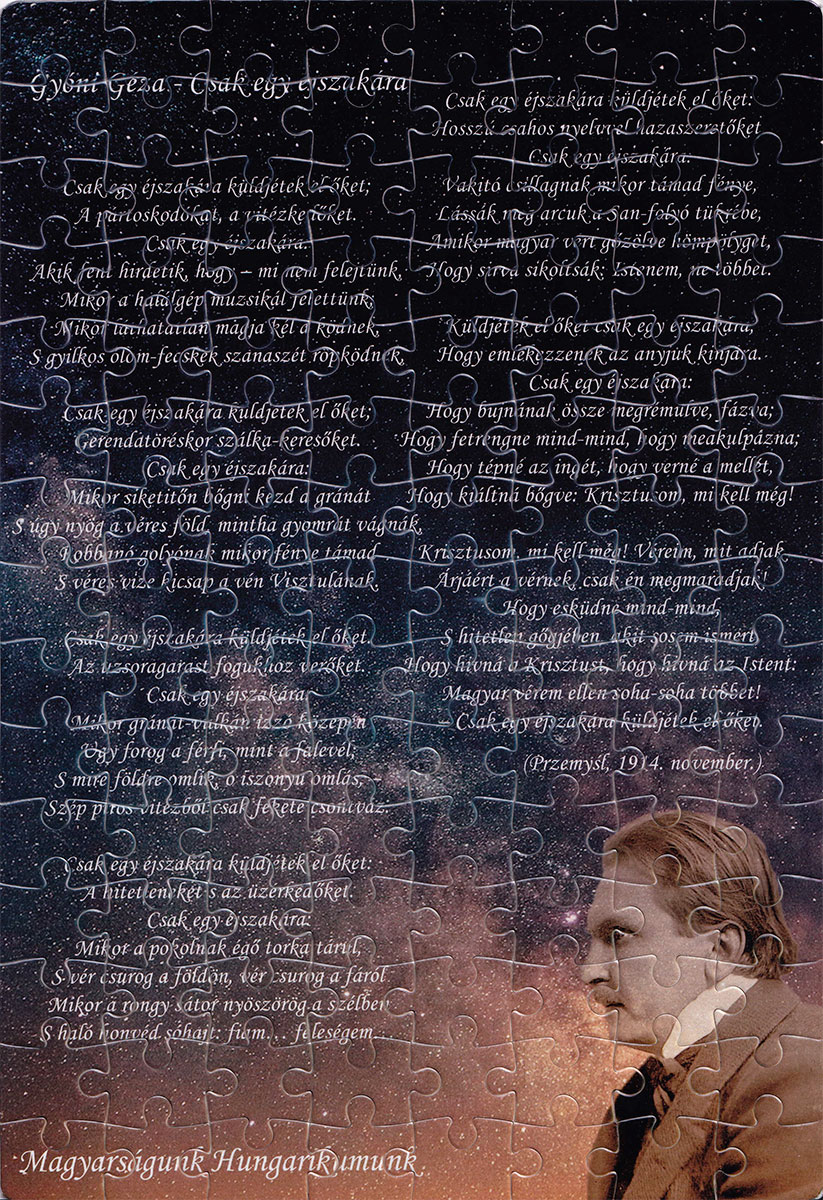 Gyóni Géza - Csak egy éjszakára
Csak egy éjszakára küldjétek el őket;
A pártoskodókat, a vitézkedőket.
Csak egy éjszakára:
Akik fent hirdetik, hogy – mi nem felejtünk,
Mikor a halálgép muzsikál felettünk;
Mikor láthatatlan magja kél a ködnek,
S gyilkos ólom-fecskék szanaszét röpködnek,
Csak egy éjszakára küldjétek el őket;
Gerendatöréskor szálka-keresőket.
Csak egy éjszakára:
Mikor siketitőn bőgni kezd a gránát
S úgy nyög a véres föld, mintha gyomrát vágnák,
Robbanó golyónak mikor fénye támad
S véres vize kicsap a vén Visztulának.
Csak egy éjszakára küldjétek el őket.
Az uzsoragarast fogukhoz verőket.
Csak egy éjszakára:
Mikor gránát-vulkán izzó közepén
Úgy forog a férfi, mint a falevél;
S mire földre omlik, ó iszonyú omlás, –
Szép piros vitézből csak fekete csontváz.
Csak egy éjszakára küldjétek el őket:
A hitetleneket s az üzérkedőket.
Csak egy éjszakára:
Mikor a pokolnak égő torka tárul,
S vér csurog a földön, vér csurog a fáról
Mikor a rongy sátor nyöszörög a szélben
S haló honvéd sóhajt: fiam... feleségem...
Csak egy éjszakára küldjétek el őket:
Hosszú csahos nyelvvel hazaszeretőket.
Csak egy éjszakára:
Vakitó csillagnak mikor támad fénye,
Lássák meg arcuk a San-folyó tükrébe,
Amikor magyar vért gőzölve hömpölyget,
Hogy sirva sikoltsák: Istenem, ne többet.
Küldjétek el őket csak egy éjszakára,
Hogy emlékezzenek az anyjuk kinjára.
Csak egy éjszakára:
Hogy bujnának össze megrémülve, fázva;
Hogy fetrengne mind-mind, hogy meakulpázna;
Hogy tépné az ingét, hogy verné a mellét,
Hogy kiáltná bőgve: Krisztusom, mi kell még!
Krisztusom, mi kell még! Véreim, mit adjak
Árjáért a vérnek, csak én megmaradjak!
Hogy esküdne mind-mind,
S hitetlen gőgjében, akit sosem ismert,
Hogy hívná a Krisztust, hogy hívná az Istent:
Magyar vérem ellen soha-soha többet!
– Csak egy éjszakára küldjétek el őket.
(Przemysl, 1914. november.)
Magyarságunk Hungarikumunk